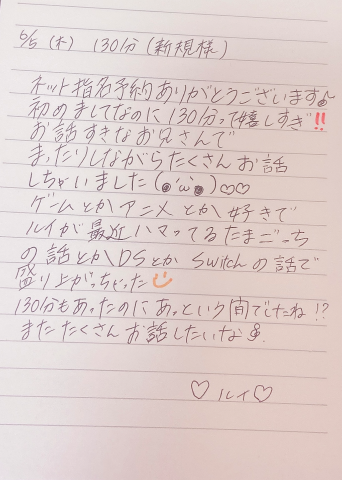 6/5 (木) 130分 (新規様)
ネット指名予約ありがとうございます♪
初めましてなのに130分って嬉しすぎ‼
お話すきなお兄さんで
まったりしながらたくさんお話
しちゃいました(●´ω`●)♡♡
ゲームとかアニメとか好きで
ルイが最近ハマってるたまごっち
の話とかDSとかSwitchの話で
盛り上がっちゃった☺
130分もあったのにあっという間でしたね!?
またたくさんお話したいな
♡ルイ♡